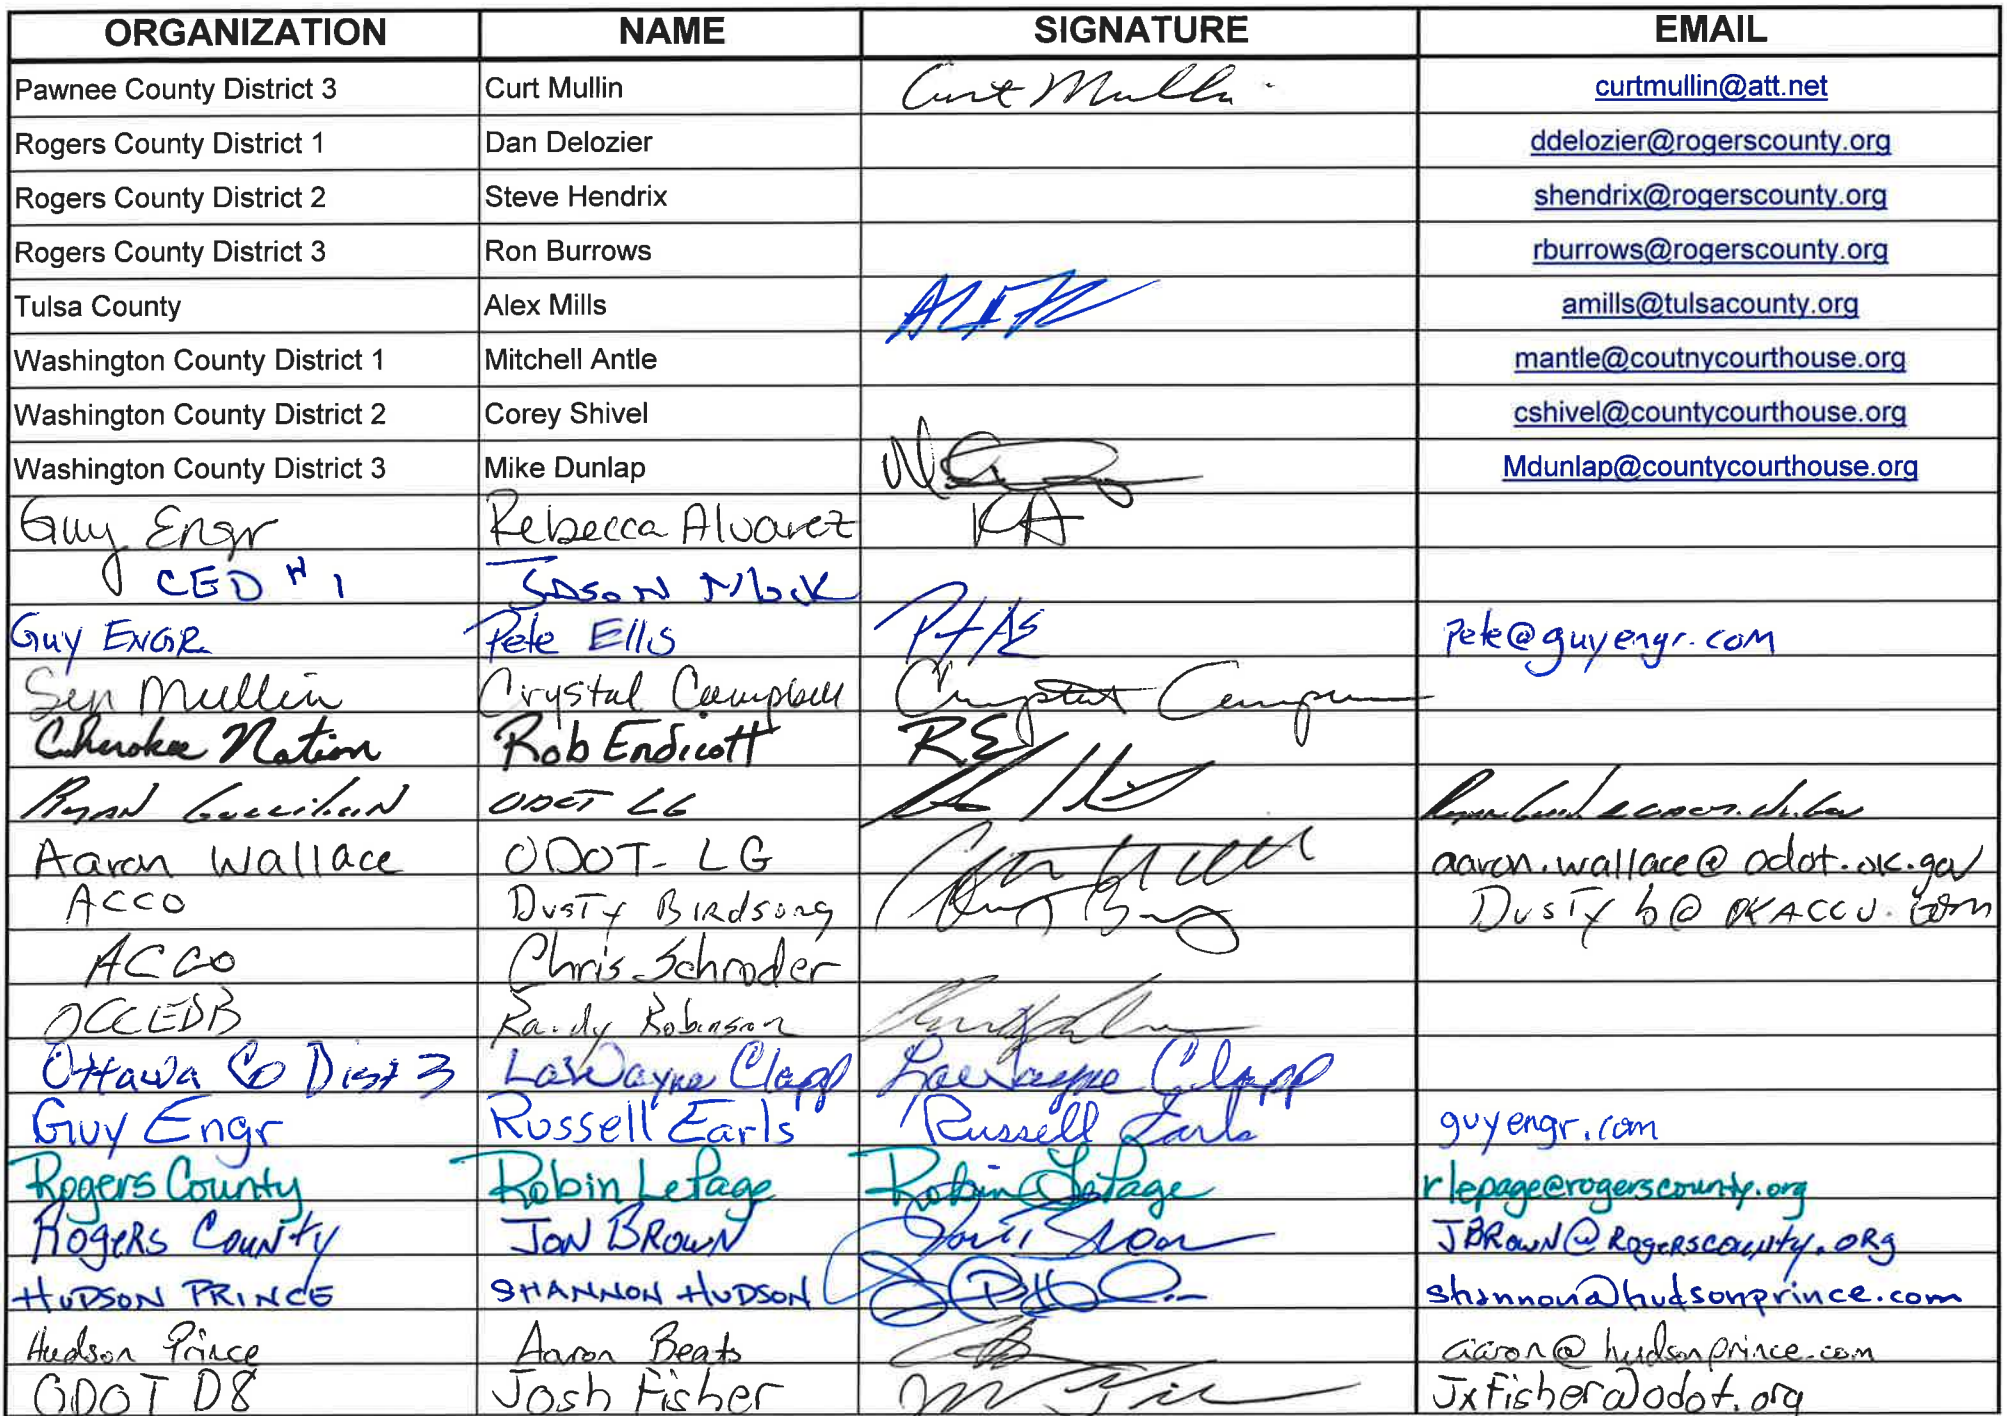 ORGANIZATION NAME SIGNATURE EMAIL
Pawnee County District 3 Curt Mullin Curt Mullin curtmullin@att.net
Rogers County District 1 Dan Delozier ddelozier@rogerscounty.org
Rogers County District 2 Steve Hendrix shendrix@rogerscounty.org
Rogers County District 3 Ron Burrows rburrows@rogerscounty.org
Tulsa County Alex Mills amills@tulsacounty.org
Washington County District 1 Mitchell Antle mantle@coutnycourthouse.org
Washington County District 2 Corey Shivel cshivel@countycourthouse.org
Washington County District 3 Mike Dunlap Mdunlap@countycourthouse.org
Guy Engr Rebecca Alvarez RA
CED #1 Jason
Guy ENGR Pete Ellis Pete@guyengr.com
Sen Mullin Crystal Campbell Crystal
Cherokee Nation Rob Endicott RE
Ryan ODOT LG
Aaron Wallace ODOT-LG aaron.wallace@odot.ok.gov
ACCO Dusty Birdsong Dustyb@OKACCO.com
ACCO Chris Schroder
OCCEDB Randy Robinson
Ottawa Co Dist 3 LaWayne Clapp LaWayne Clapp
Guy Engr Russell Earls Russell Earls guyengr.com
Rogers County Robin LePage Robin LePage rlepage@rogerscounty.org
Rogers County JON BROWN JBROWN@ROGERSCOUNTY.ORG
HUDSON PRINCE SHANNON HUDSON shannon@hudsonprince.com
Hudson Prince Aaron Beats aaron@hudsonprince.com
ODOT D8 Josh Fisher JxFisher@odot.org